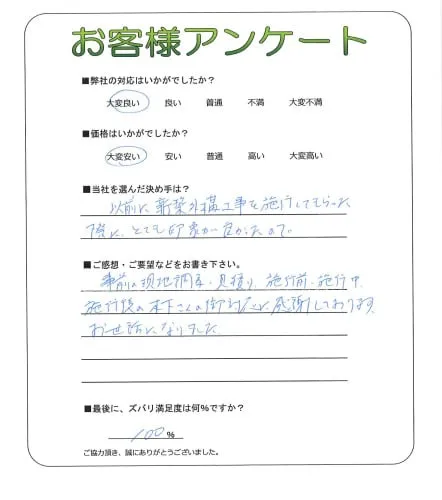 お客様アンケート
■弊社の対応はいかがでしたか?
大変良い 良い 普通 不満 大変不満
■価格はいかがでしたか?
大変安い 安い 普通 高い 大変高い
■当社を選んだ決め手は?
以前に新築外構工事を施行してもらった
際に、とても印象が良かったので。
■ご感想・ご要望などをお書き下さい。
事前の現地調査・見積り、施行前、施行中、
施行後の木下さんの御対応に感謝しております。
お世話になりました
■最後に、ズバリ満足度は何%ですか?
100 %
ご協力頂き、誠にありがとうございました。